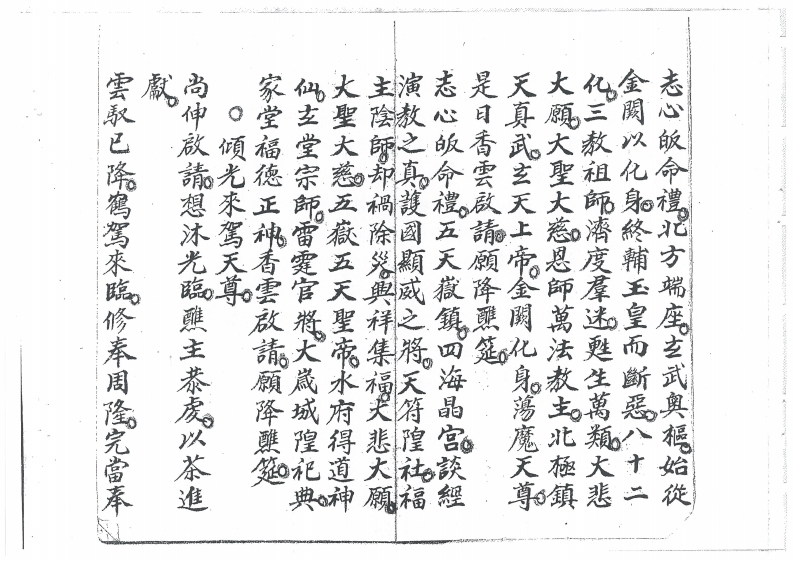 志心皈命禮。北方端座。玄武奥樞。始從
金闕以化身。終輔玉皇而斷惡。八十二
化。三教祖師。濟度羣迷。甦生萬類。大悲
大願。大聖大慈。恩師萬法教主。北極鎮
天真武。玄天上帝。金闕化身。蕩魔天尊。
是日香雲啟請。願降醮筵。
志心皈命禮。五天嶽鎮。四海晶宮。談經
演教之真。護國顯威之將。天符隍社。福
主陰師。却禍除災。興祥集福。大悲大願。
大聖大慈。五嶽五天聖帝。水府得道神
仙。玄堂宗師。雷霆官將。大嵗城隍祀典。
家堂福德正神。香雲啟請。願降醮筵。
○傾光來駕天尊。
尚伸啟請。想沐光臨。醮主恭虔。以茶進
獻。
雲馭已降。鶴駕來臨。修奉周隆。完當奉